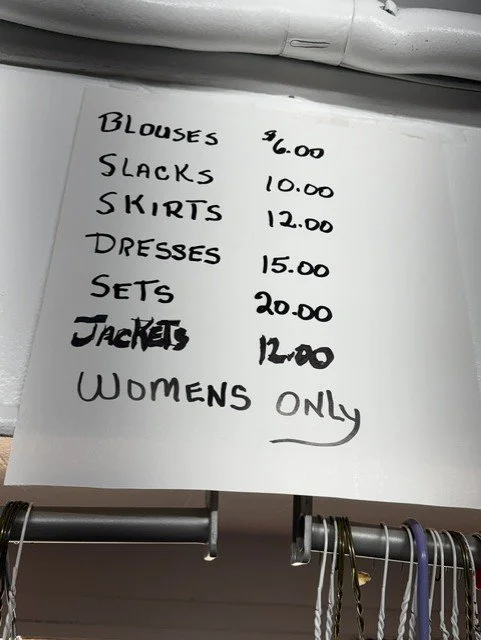 BLOUSES $6.00
SLACKS 10.00
SKIRTS 12.00
DRESSES 15.00
SETS 20.00
JACKETS 12.00
WOMENS ONLY